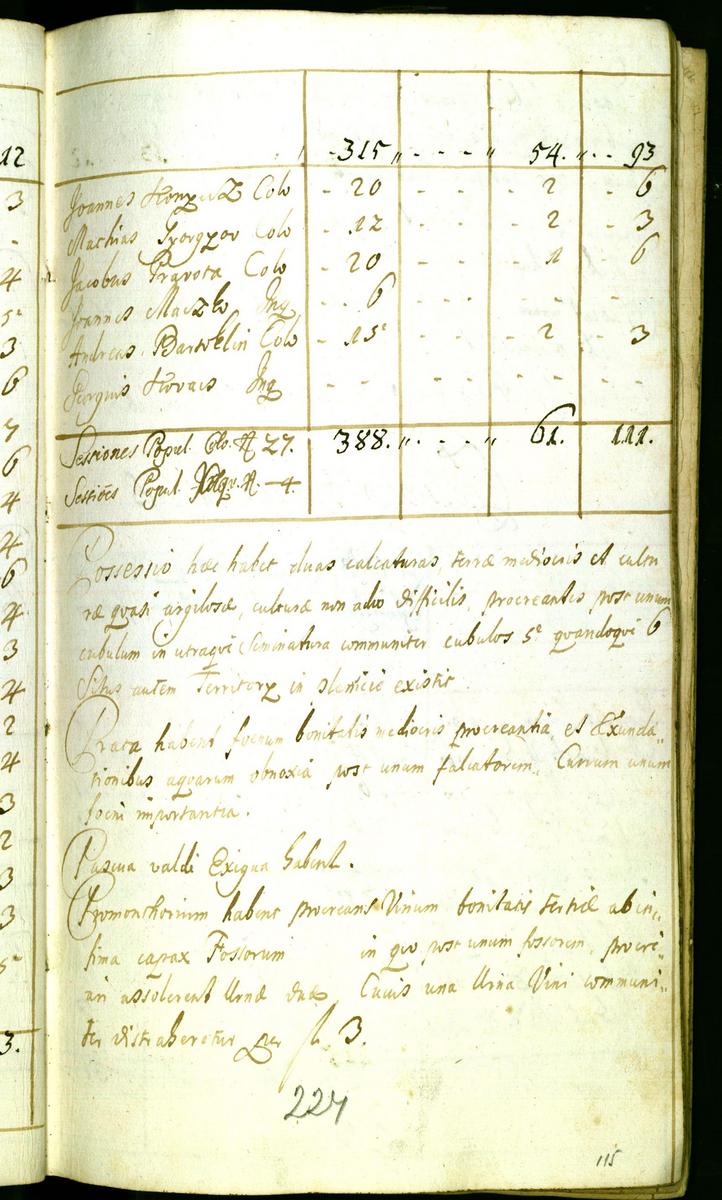 315 „ - - - „ 54. „ - - 93
Joannes Colo - 20 - - - 2 - 6
Mathias Gyorgyov Colo - 12 - - - 2 - 3
Jacobus Pravota Colo - 20 - - - 1 - 6
Joannes Maczko Inq - - 6 - - - - - -
Andreas Colo - 15 - - - 2 - 3
Georgius Kovacs Inq - - - - - - - -
Sessiones Popul. Colo. 27. 388. „ - - - „ 61. 111.
Sessiões Popul. Inqu. — 4.
Possessio hæc habet duas calcaturas, terræ mediocris et cultu
ræ quasi argilosæ, culturæ non adeo difficilis, procreantis post unum
cubulum in utraque seminatura communiter cubulos 5 quandoque 6
Situs autem Territory in existit
Prata habent foenum bonitatis mediocris procreantia, et Exunda„
tionibus aquarum obnoxia post unum falcatorem„ Currum unum
foeni importantia.
Pascua valde Exigua habent.
Promonthorium habent procreans Vinum bonitatis tertiæ
capax Fossorum in quo post unum fossorem, procre„
ari assolerent Urnæ duæ Cuius una Urna Vini communi„
ter distraheretur per fl. 3.
227
115
12
3
-
4
5
3
6
7
6
4
4
6
4
3
4
2
4
3
2
3
3
5
3.